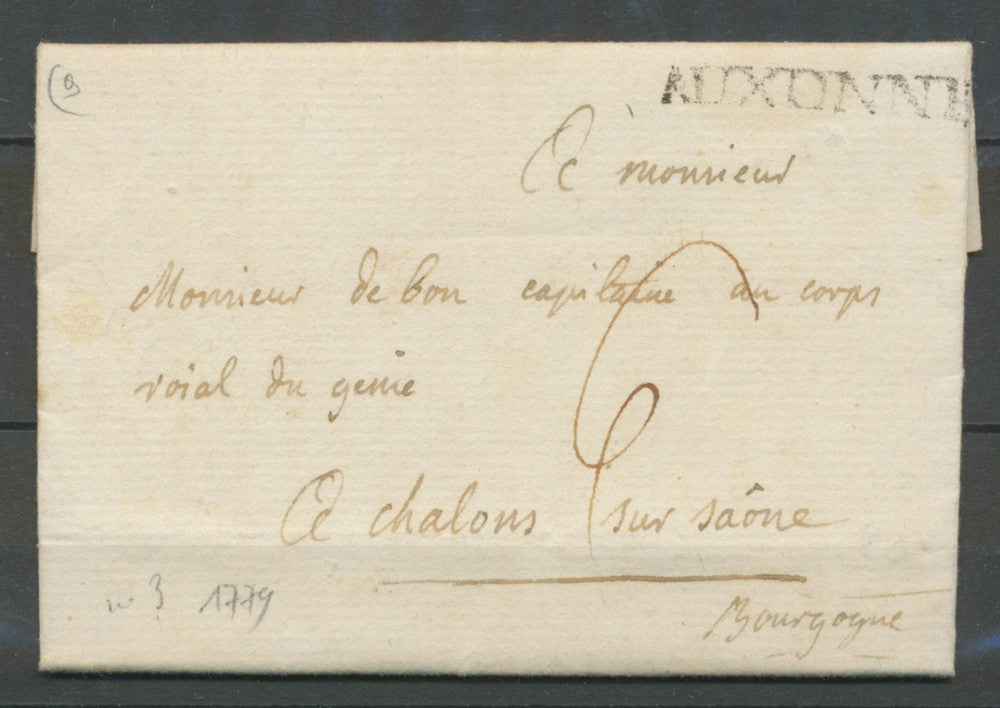 (9
AUXONNE
A monsieur
Monsieur de bon capitaine au corps
roial du genie
6
A chalons sur saône
n 3 1779
Bourgogne